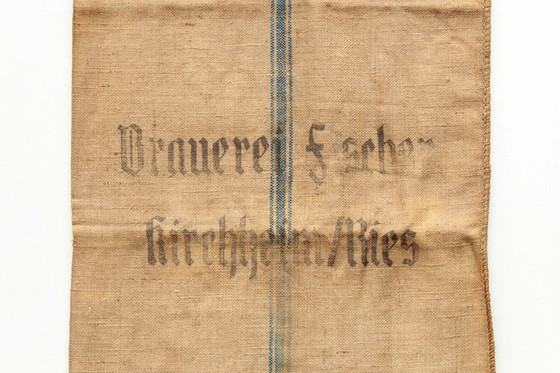 Brauerei Fischer
Kirchheim/Ries